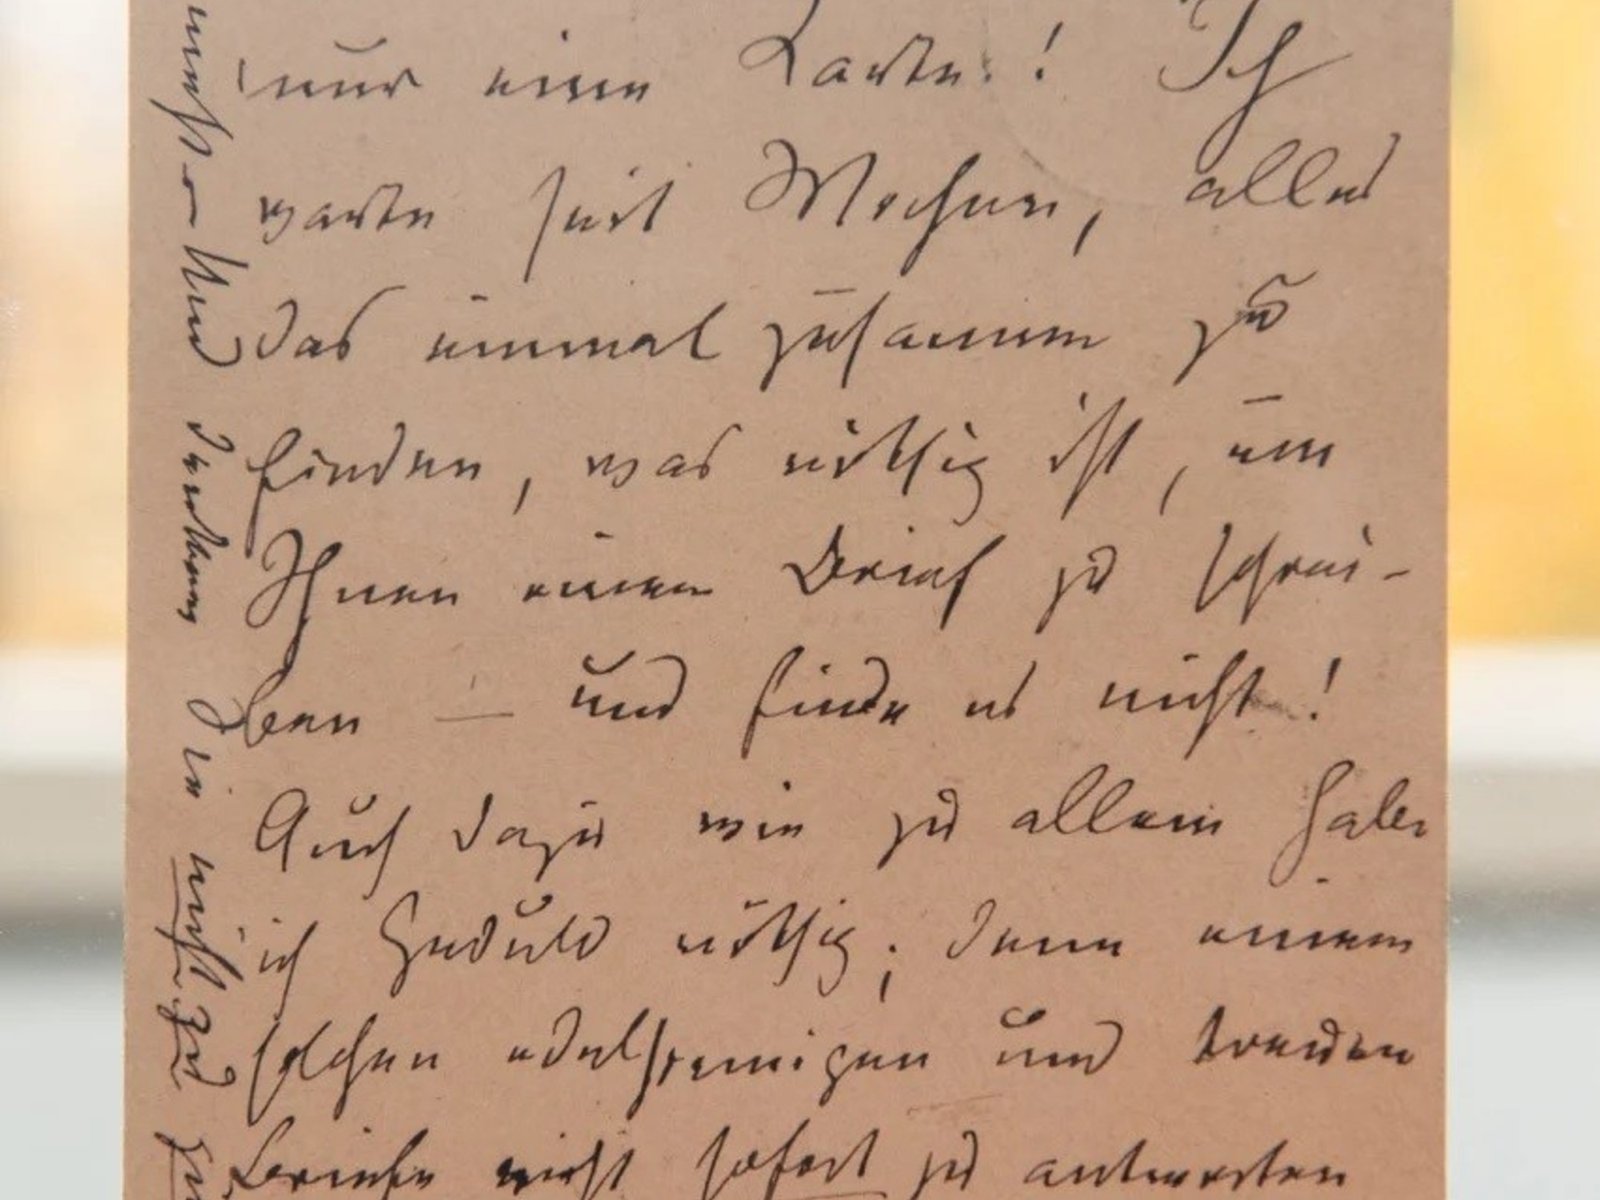 nur eine Karte! Ich
warte seit Wochen, alles
das einmal zusammen zu
finden, was nöthig ist, um
Ihnen einen Brief zu schrei-
ben — und finde es nicht!
Auch dazu wie zu allem habe
ich Geduld nöthig; denn einem
solchen edelsinnigen und treuen
Briefe nicht sofort zu antworten
mehr — Und
in nicht zu